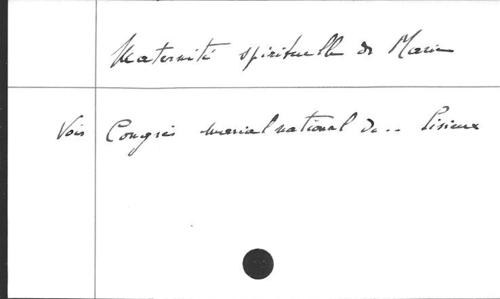 Maternité spirituelle de Marie
Voir Congrès marial national de .. Lisieux